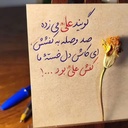 گویند علی می زده
صد وصله به کفشش
ای کاش دل خستهٔ ما
کفش علی بود ...!